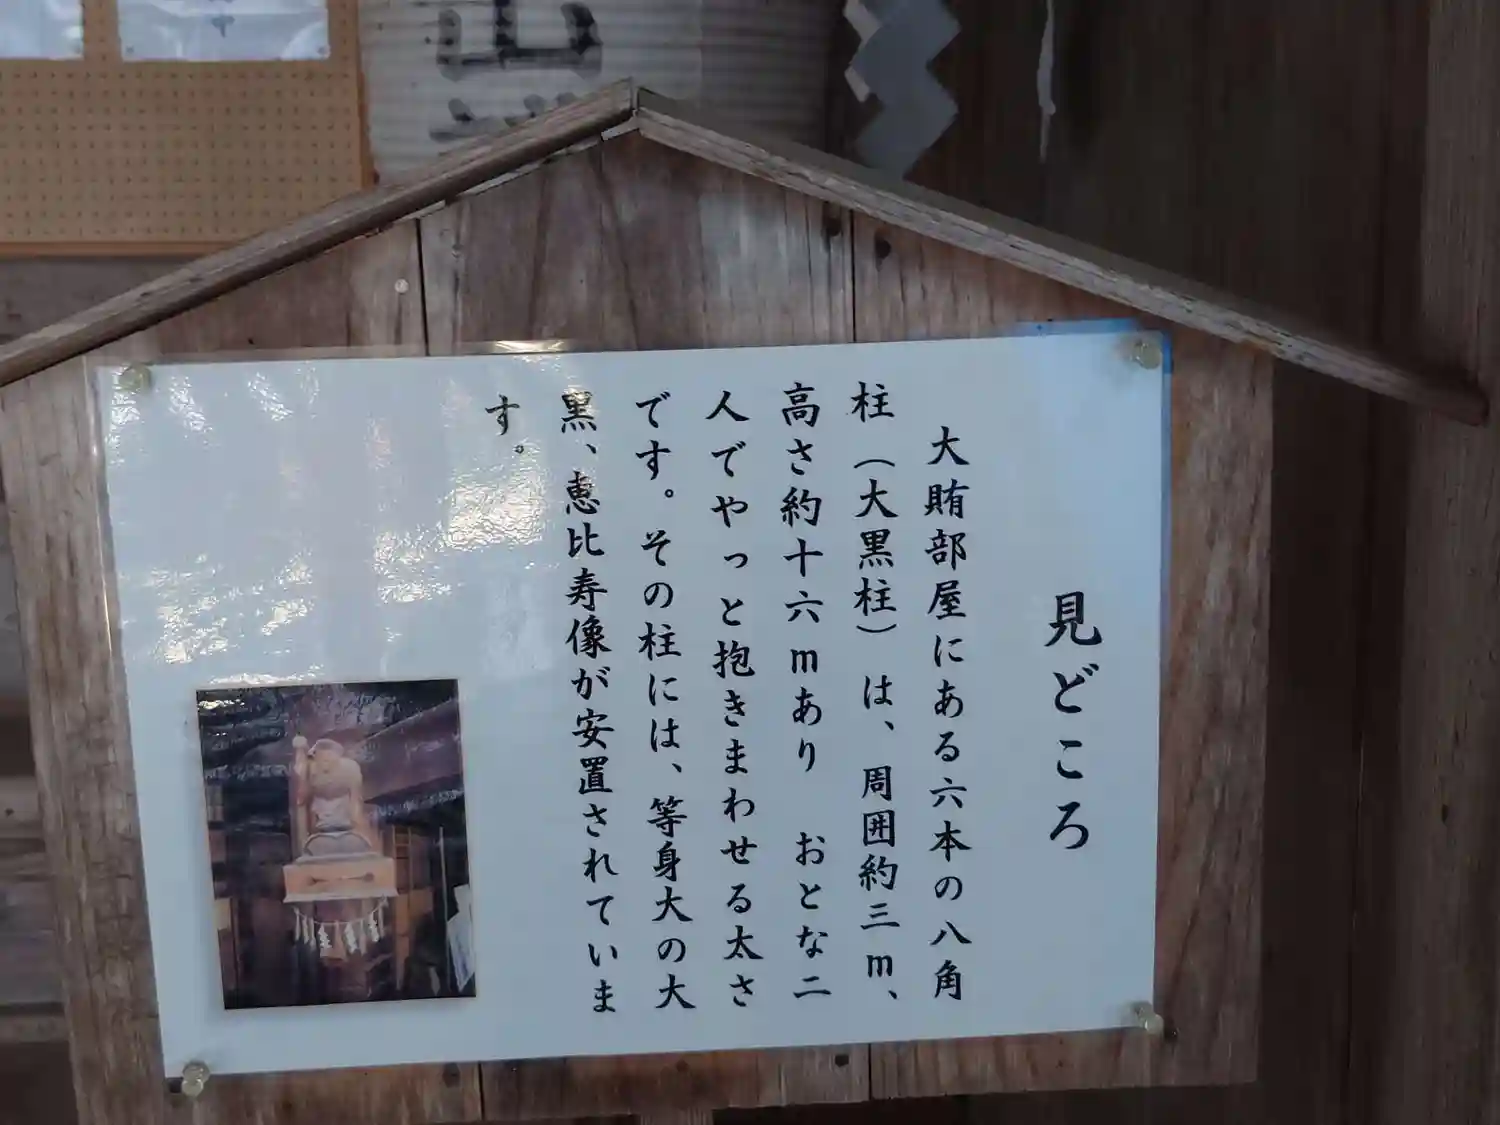 見どころ
大賄部屋にある六本の八角
柱（大黒柱）は、周囲約三ｍ、
高さ約十六ｍあり　おとな二
人でやっと抱きまわせる太さ
です。その柱には、等身大の大
黒、恵比寿像が安置されていま
す。
山